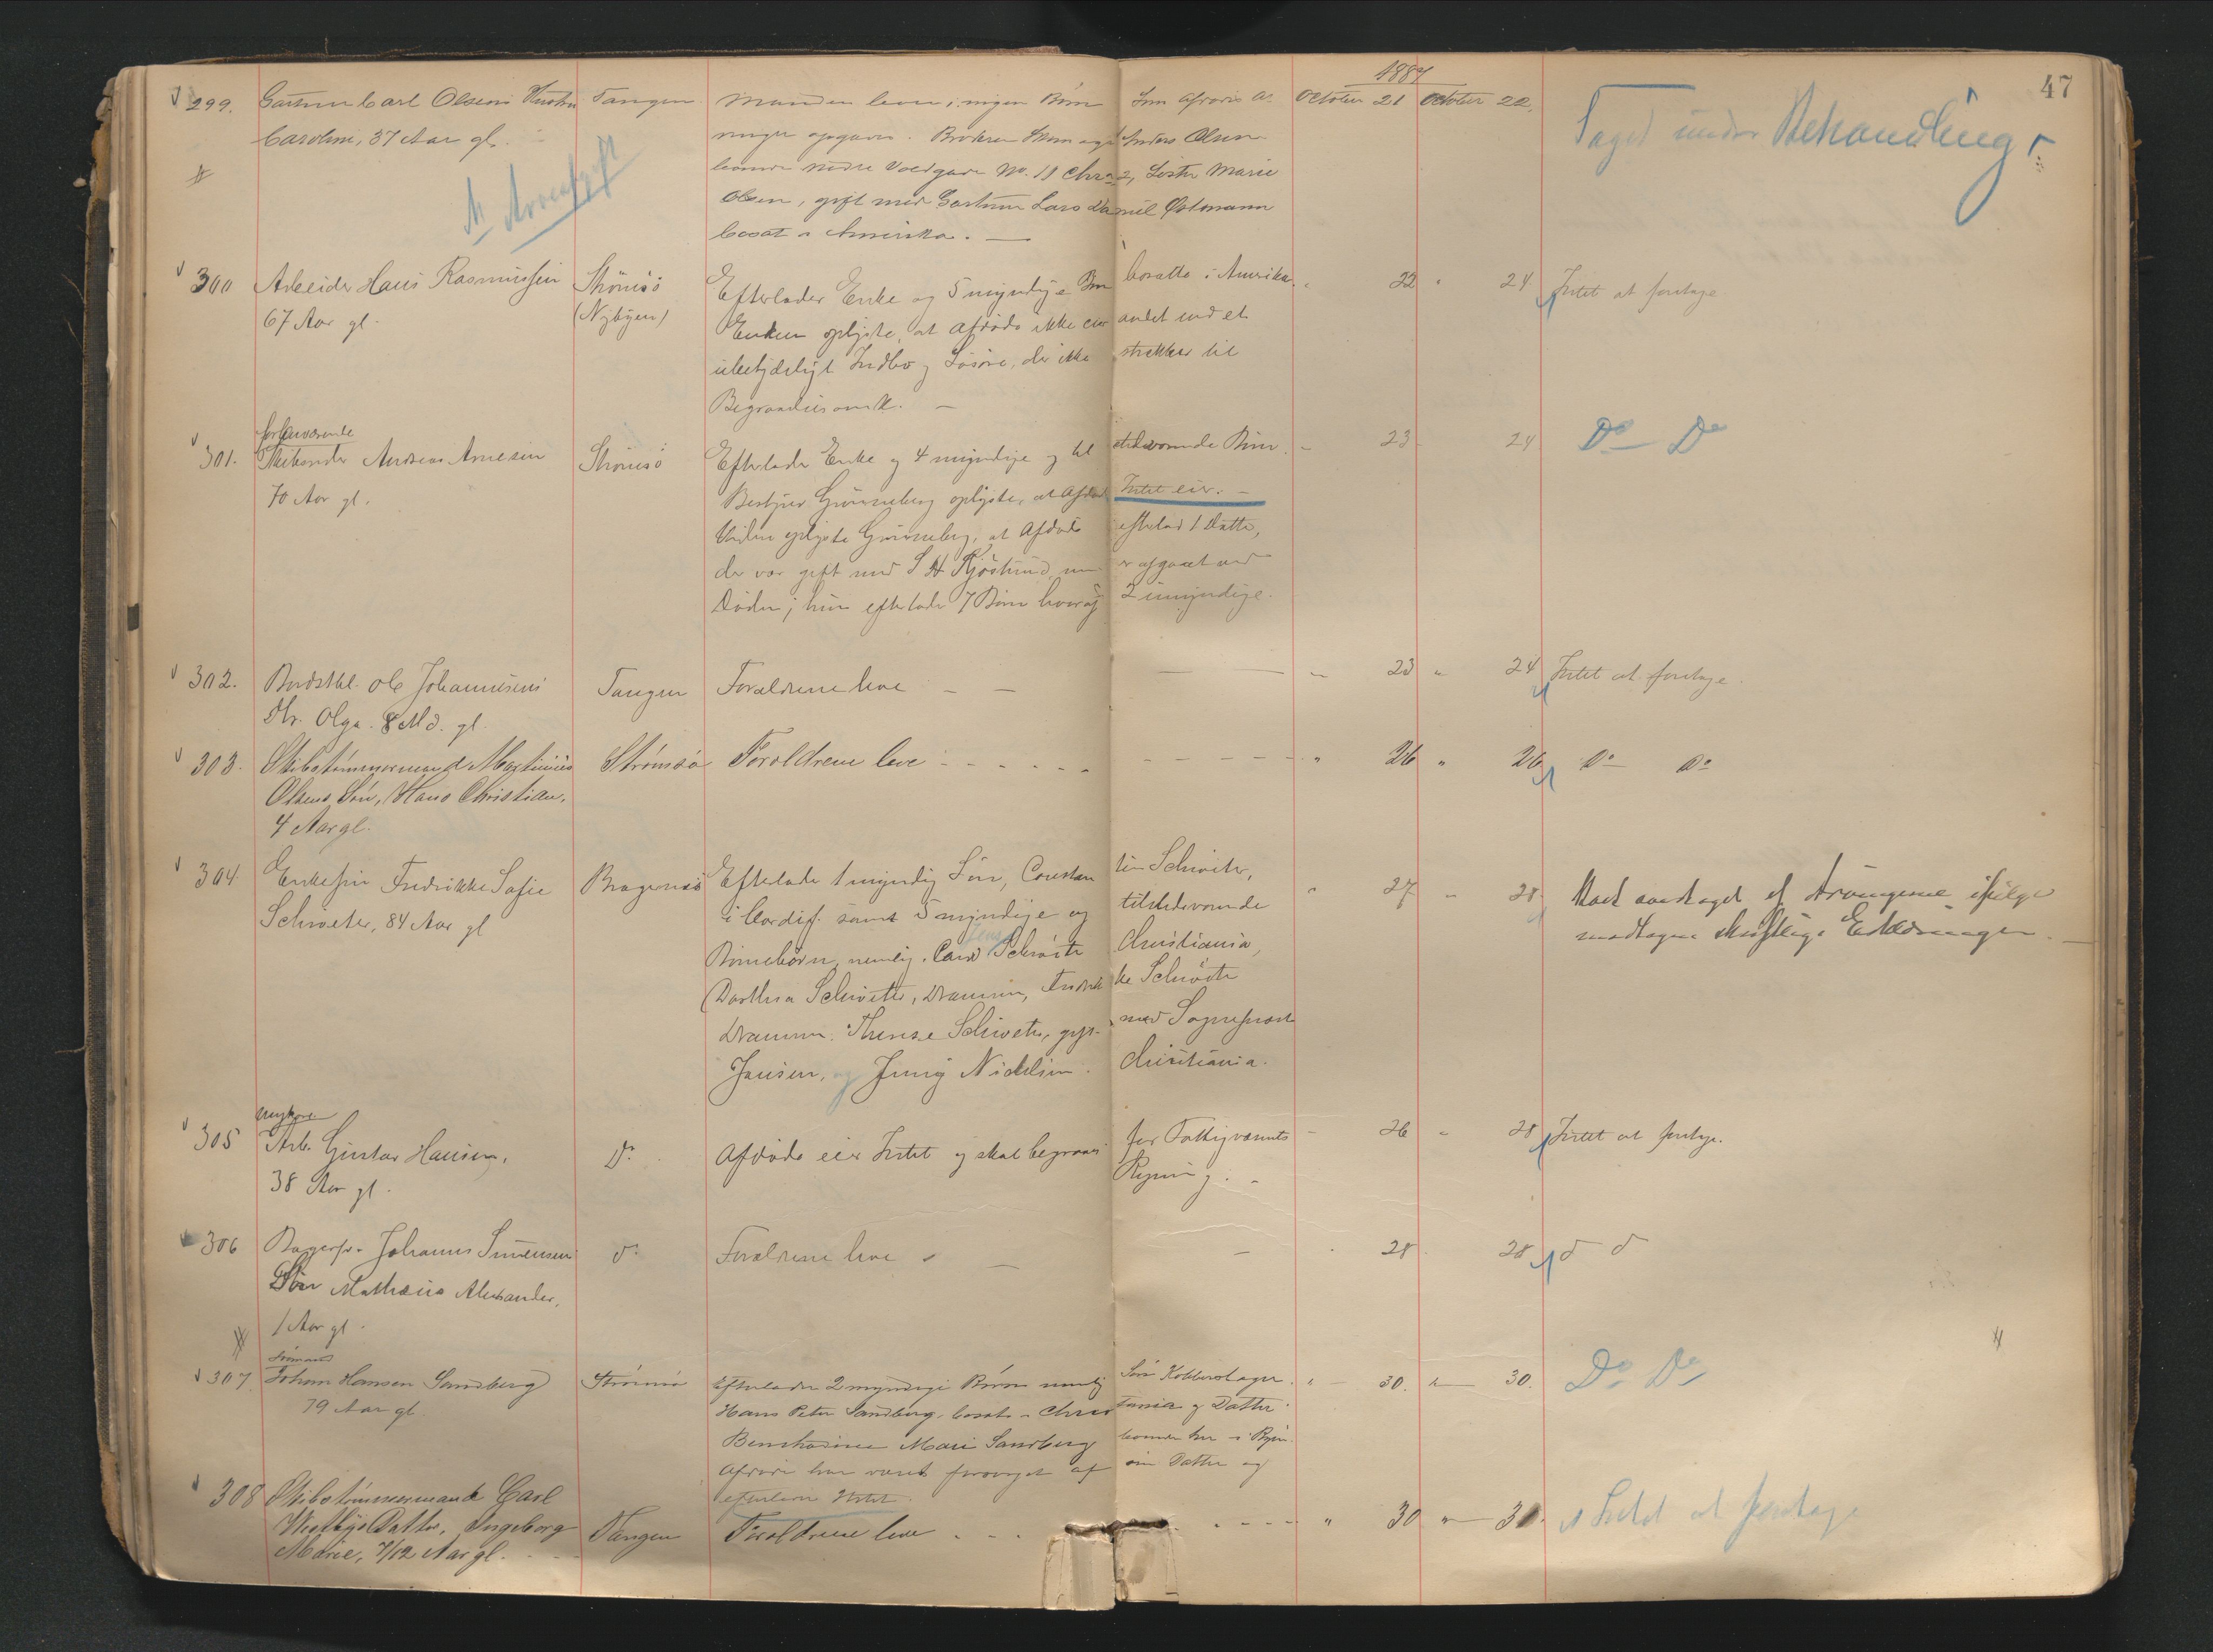 1887
47
299. Gartner Carl Olsens Hustru Tangen Manden lever, ingen Børn Som Afdødes October 21 October 22. Taget under Behandling
Caroline, 37 Aar gl. opgaves. Broderen Anders Olsen
boende nedre Voldgade No. 11 Chra, Søster Marie
Olsen, gift med Gartner Lars Daniel Østmann
bosat i Amerika. —
N. Arveafgift
300 Arbeider Hans Rasmussen Strömsö Efterlader Enke og 5 myndige Børn bosatte i Amerika. " 22 " 24 Intet at foretage
67 Aar gl. (Nybyen) Enken oplyste, at Afdøde ikke eier andet end et
ubetydeligt Indbo og Løsøre, der ikke strekker til
Begravelsesomk. —
forhenværende
301. Skibsreder Andreas Arnesen Strömsö Efterlader Enke og 4 myndige og tilstedeværende Børn. — 23 24 Do Do
70 Aar gl. Bestyrer Grünneberg oplyste, at Afdøde Intet eier. —
Videre oplyste Grünneberg, at Afdøde efterlod 1 Datter,
der var gift med S H Kjöstrud, nu er afgaaet ved
Døden; hun efterlader 7 Børn hvoraf 2 umyndige.
302. Ole Johannesens Tangen Forældrene leve — — " 23 " 24 Intet at foretage.
Dtr. Olga. 8 Md. gl.
303. Skibstømmermand Martinius Strømsø Forældrene leve - - - - - " 26 " 26 Do Do
Olsens Søn, Hans Christian,
4 Aar gl.
304 Enkefru Fredrikke Sofie Bragernæs Efterlader 1 myndig Søn, Constantin Schwetr, " 27 " 28 Boet overtaget af Arvingerne ifølge
Schroeter, 84 Aar gl i Cardiff. samt 5 myndige og tilstedeværende modtagne skriftlige Erklæringer. —
Jens
Børnebørn, nemlig. Carl Schröter Christiania,
Dorthea Schröter, Drammen, Fredrikke Schröter
Drammen. Therese Schröter, gift med Sognepræst
Jensen, og Jenny Nickelsen. Christiania.
305 Arb. Gustav Hansen, Do Afdøde eier Intet og skal begraves for Fattigvæsenets — 26 " 28 Intet at foretage.
38 Aar gl. Regning. —
306 Johannes Simensen do Forældrene leve — 28 28 do do
Søn Mathæus Alexander,
1 Aar gl.
Sømand
307 Johan Hansen Sandberg Strömsö Efterlader 2 myndige Børn nemlig Søn Kobberslager " 30. " 30. Do Do
79 Aar gl. Hans Peter Sandberg, bosat i Christiania og Datter
Marie Sandberg boende her i Byen.
Afdøde har været forsørget af sin Datter og
efterlader Intet.
308 Skibstømmermand Carl
Westbys Datter, Ingeborg Tangen Forældrene leve - - - - - " 30 " 30. Intet at foretage
Marie, 7/12 Aar gl.